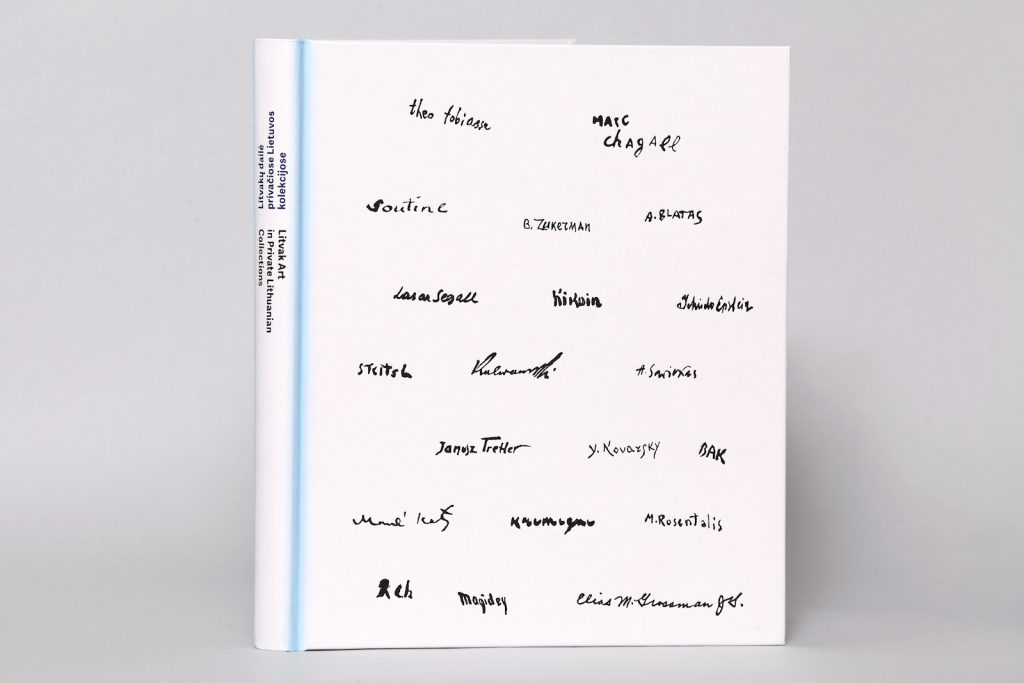 Litvakų dailė
privačiose Lietuvos
kolekcijose
Litvak Art
in Private Lithuanian
Collections
theo tobiasse
MARC
chagall
Soutine
B. Zukerman
A. BLATAS
Lasar Segall
Kikoin
Jehudo Epstein
A. Savickas
Janusz Tretler
y. Kovarsky
BAK
Mané Katz
M. Rosentalis
Magidey
Elias M. Grossman